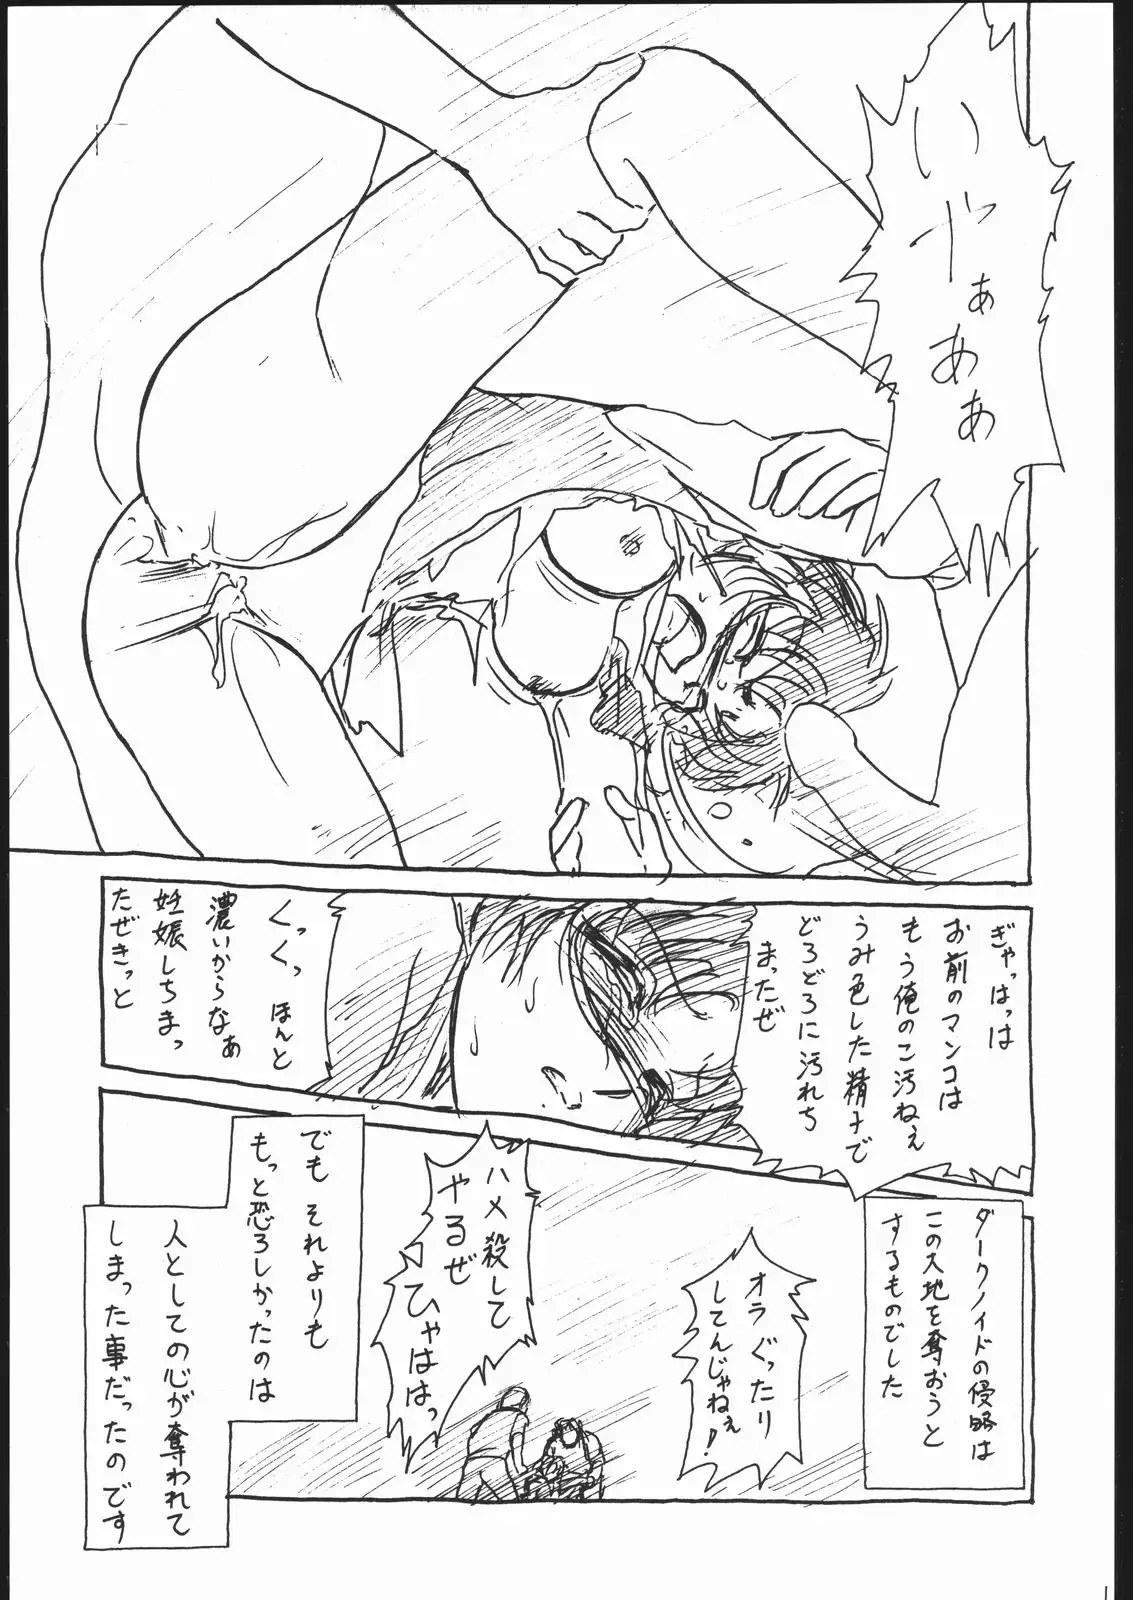 いやぁああ
ぎゃっはっは
お前のマンコは
もう俺のこ汚ねぇ
うみ色した精子で
どろどろに汚れち
まったぜ
くっくっ ほんと
濃いからなぁ
妊娠しちまっ
たぜきっと
ダークノイドの侵略は
この大地を奪おうと
するものでした
オラぐったり
してんじゃねぇ!
ハメ殺して
やるぜ
ひゃははっ
でも それよりも
もっと恐ろしかったのは
人としての心が奪われて
しまった事だったのです